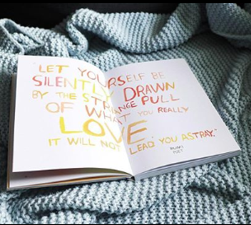 "LET YOURSELF BE
SILENTLY DRAWN
BY THE STRANGE PULL
OF WHAT YOU REALLY
LOVE.
IT WILL NOT LEAD YOU ASTRAY."